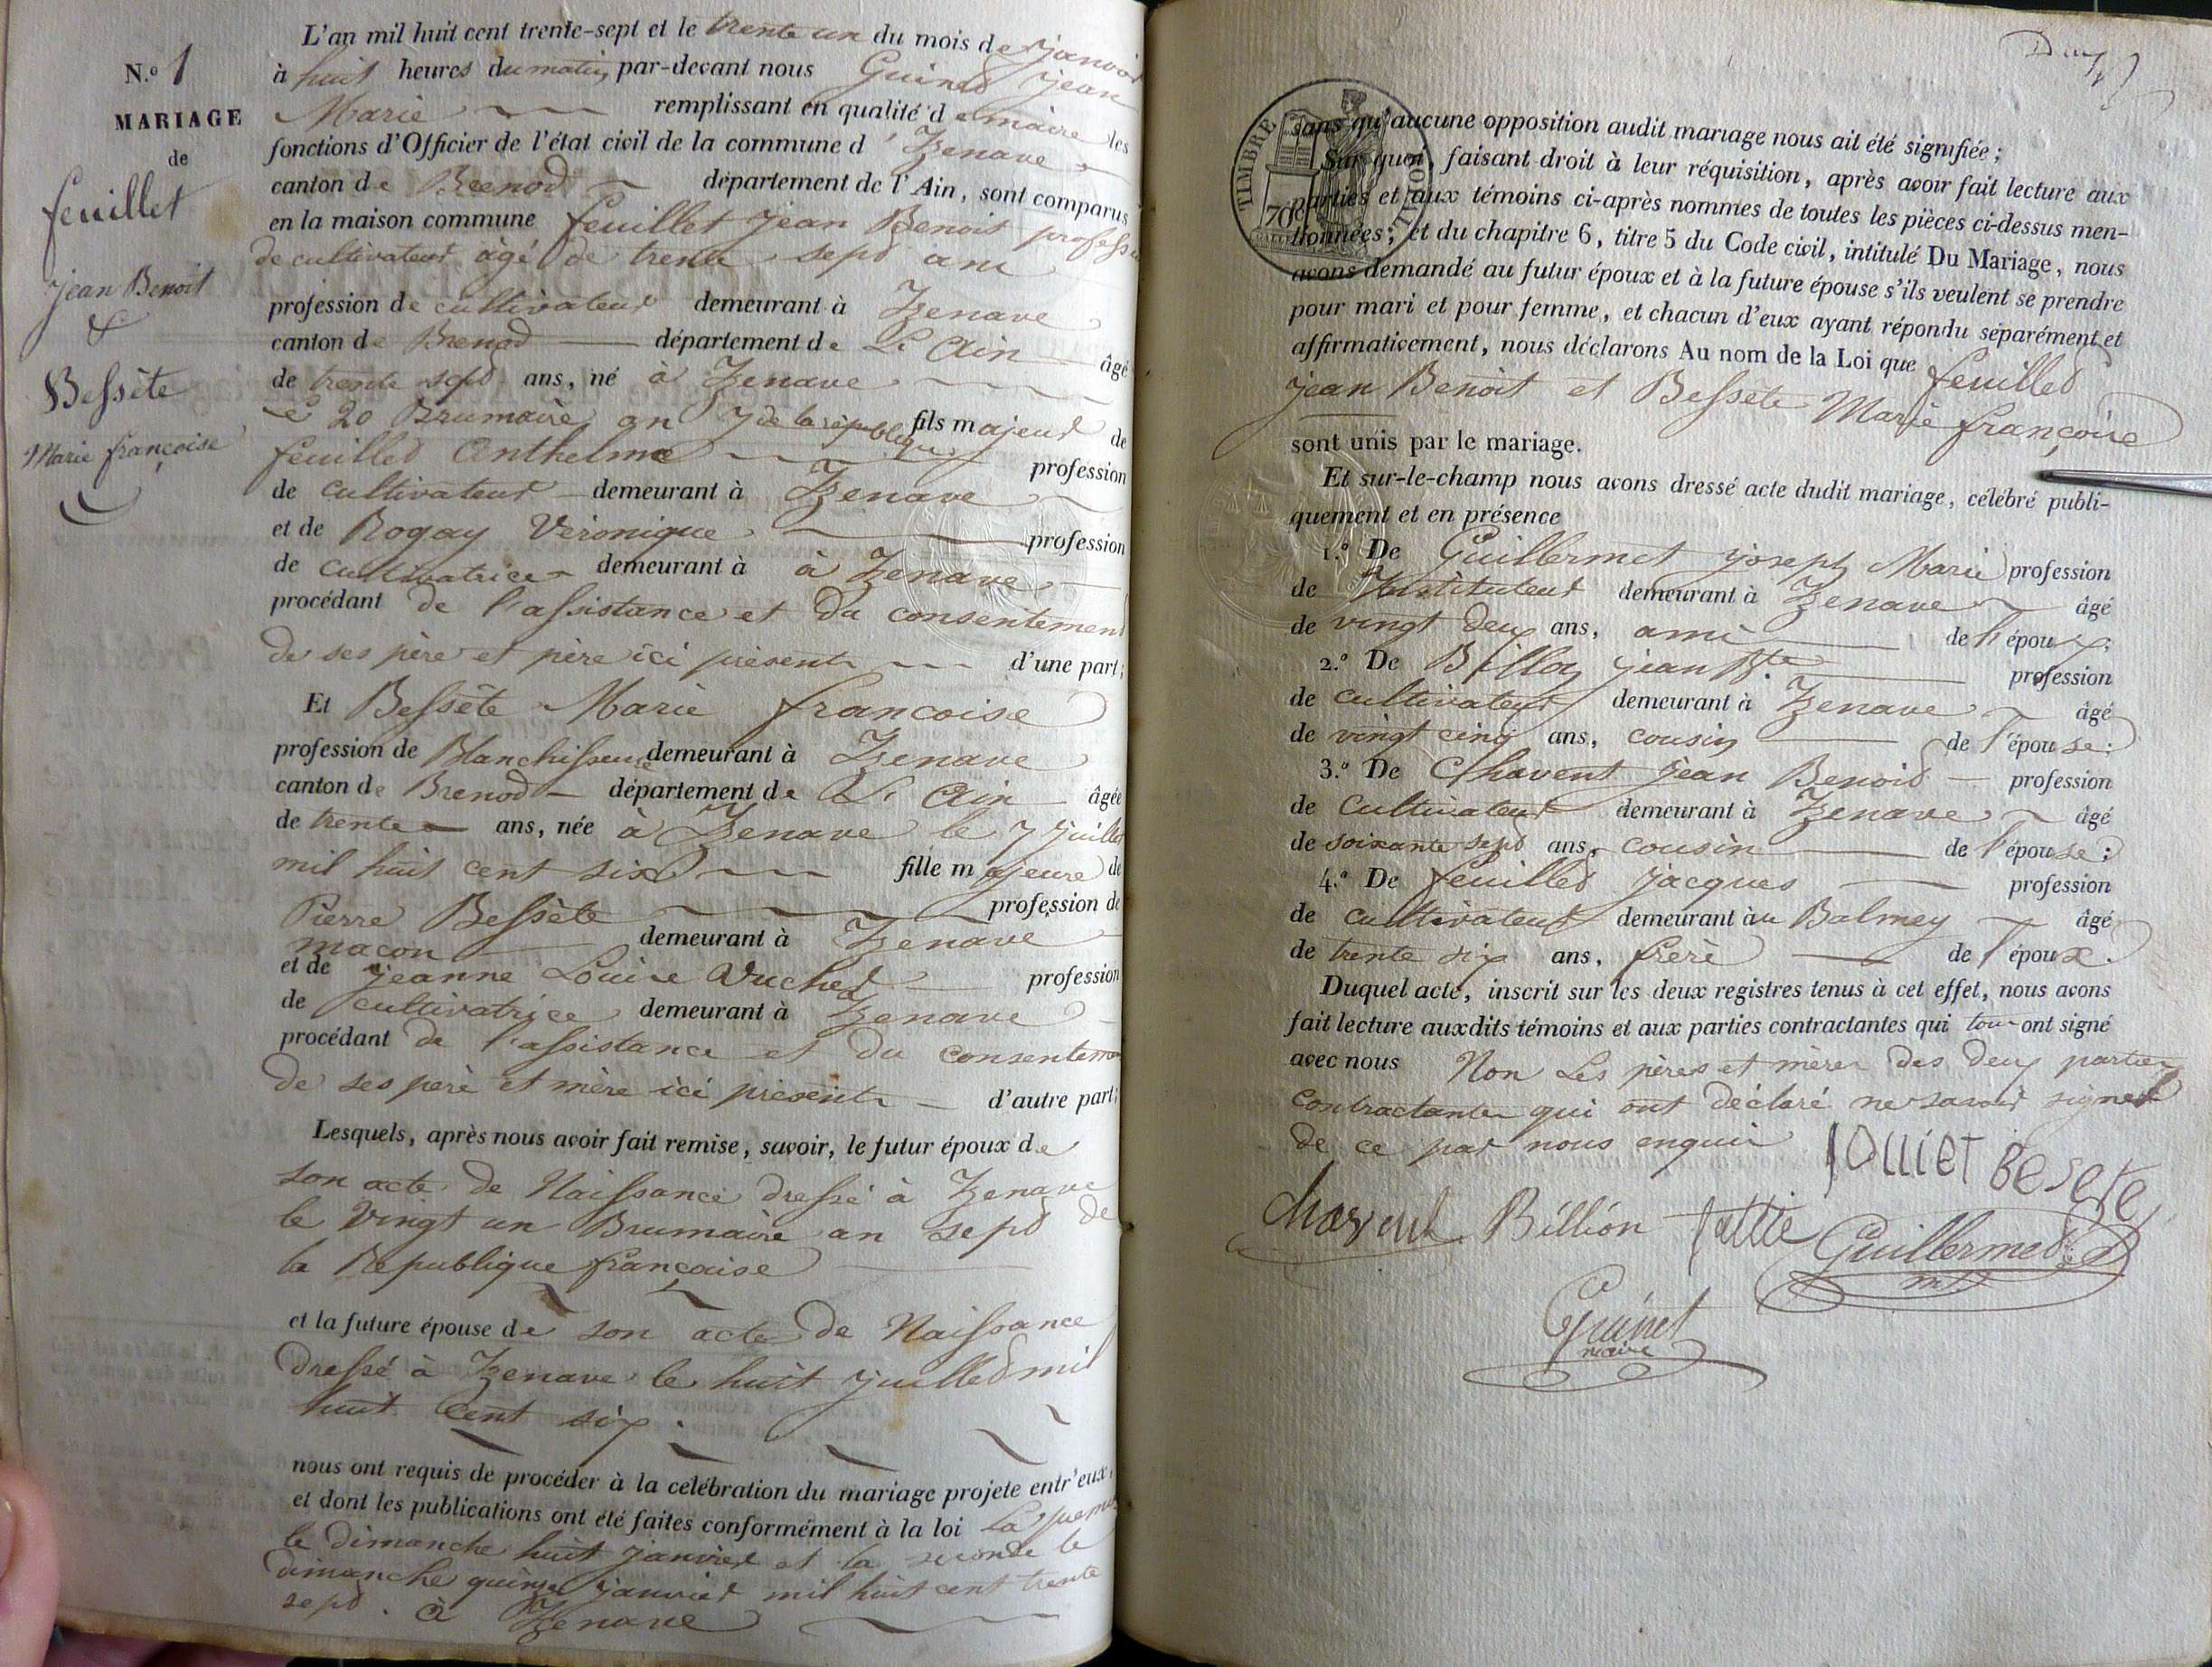 N.o 1
MARIAGE
de
feuillet
jean Benoit
&
Bessête
Marie françoise
L'an mil huit cent trente-sept et le trente un du mois de janvier
à huit heures du matin, par-devant nous Guinet jean
Marie remplissant en qualité d e maire les
fonctions d'Officier de l'état civil de la commune d' Izenave
canton de Brenod département de l'Ain, sont comparus
en la maison commune feuillet jean Benoit profession
de cultivateur agé de trente sept ans
profession de cultivateur demeurant à Izenave
canton de Brenod département de L'Ain âgé
de trente sept ans, né à Izenave
le 20 Brumaire an 7 de la république fils majeur de
feuillet Anthelme profession
de cultivateur demeurant à Izenave
et de Rogay Véronique profession
de cultivatrice demeurant à à Izenave
procédant de l'assistance et du consentement
de ses père et père ici présents d'une part;
Et Bessête Marie francoise
profession de Blanchisseuse demeurant à Izenave
canton de Brenod département de L'Ain âgée
de trente ans, née à Izenave le 7 juillet
mil huit cent six fille majeure de
Pierre Bessète profession de
maçon demeurant à Izenave
et de jeanne Louise Vuchet profession
de cultivatrice demeurant à Izenave
procédant de l'assistance et du consentement
de ses père et mère ici présents d'autre part;
Lesquels, après nous avoir fait remise, savoir, le futur époux de
son acte de Naissance dressé à Izenave
le vingt un Brumaire an sept de
la République française
et la future épouse de son acte de Naissance
dressé à Izenave le huit juillet mil
huit cent six.
nous ont requis de procéder à la célébration du mariage projeté entr'eux,
et dont les publications ont été faites conformément à la loi La premiere
le dimanche huit janvier et la seconde le
dimanche quinze janvier mil huit cent trente
sept. à Izenave
TIMBRE
70c
sans qu'aucune opposition audit mariage nous ait été signifiée;
Sur quoi, faisant droit à leur réquisition, après avoir fait lecture aux
parties et aux témoins ci-après nommés de toutes les pièces ci-dessus men-
tionnées; et du chapitre 6, titre 5 du Code civil, intitulé Du Mariage, nous
avons demandé au futur époux et à la future épouse s'ils veulent se prendre
pour mari et pour femme, et chacun d'eux ayant répondu séparément et
affirmativement, nous déclarons Au nom de la Loi que feuillet
jean Benoit et Bessète Marie françoise
sont unis par le mariage.
Et sur-le-champ nous avons dressé acte dudit mariage, célébré publi-
quement et en présence
1.o De Guillermet joseph Marie profession
de Instituteur demeurant à Izenave âgé
de vingt deux ans, ami de l'époux;
2.o De Billion jean Bte profession
de cultivateur demeurant à Izenave âgé
de vingt cinq ans, cousin de l'épouse;
3.o De Chavent jean Benoit profession
de Cultivateur demeurant à Izenave âgé
de soixante sept ans, cousin de l'épouse;
4.o De feuillet jacques profession
de cultivateur demeurant àu Balmey âgé
de trente six ans, frère de l'époux.
Duquel acte, inscrit sur les deux registres tenus à cet effet, nous avons
fait lecture auxdits témoins et aux parties contractantes qui tous ont signé
avec nous Non Les pères et mères des deux parties
contractantes qui ont déclaré ne savoir signer
de ce par nous enquis
Besete
Chavent Billion Guillermet
Guinet
maire